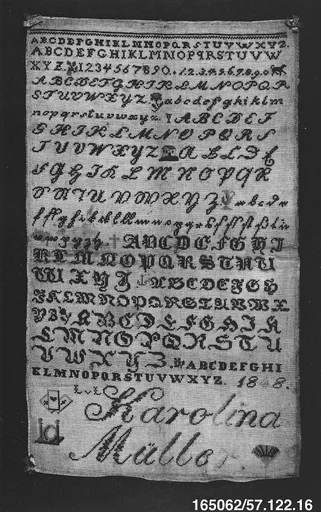 ABCDEFGHIKLMNOPQRSTUVWXYZ.
ABCDEFGHIKLMNOPQRSTUVW
XYZ. 1234567890. 1.2.3.4.5.6.7.8.9.0
ABCDEFGHIJKLMNOPQR
STUVWXYZ abcdefghiklm
nopqrstuvwxyz ABCDEF
GHIKLMNOPQRS
TUVWXYZ ABCDE
FGHIKLMNOPQR
STUVWXYZ abcde
ABCDEFGHI
KLMNOPQRSTU
WXYZ ABCDEFGH
IKLMNOPQRSTUVWX
YZ ABCDEFGHIK
LMNOPQRSTU
VWXYZ. ABCDEFGHI
KLMNOPQRSTUVWXYZ. 18
Karolina
Müller
165062/57.122.16